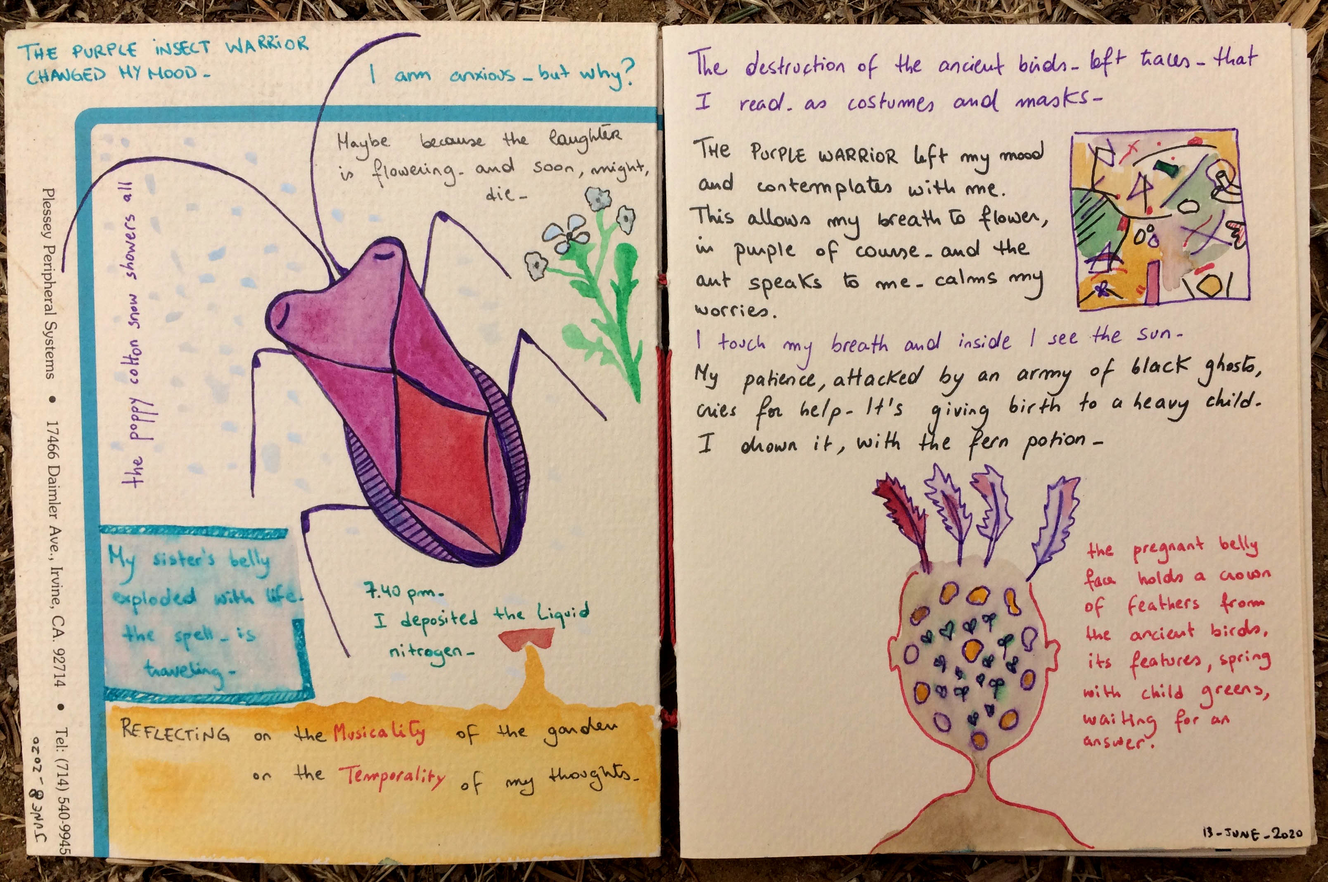 THE PURPLE INSECT WARRIOR
CHANGED MY MOOD-
I am anxious-but why?
Maybe because the laughter
is flowering- and soon, might,
die-
the poppy cotton snow showers all
Plessey Peripheral Systems • 17466 Daimler Ave., Irvine, CA. 92714 • Tel: (714) 540-9945
JUNE 8-2020
My sister's belly
exploded with life-
the spell-is
traveling-
7.40 pm-
I deposited the Liquid
nitrogen-
REFLECTING on the Musicality of the garden
on the Temporality of my thoughts-
The destruction of the ancient birds-left traces-that
I read- as costumes and masks-
THE PURPLE WARRIOR left my mood
and contemplates with me.
This allows my breath to flower,
in purple of course-and the
ant speaks to me-calms my
worries.
I touch my breath and inside I see the sun-
My patience, attacked by an army of black ghosts,
cries for help- It's giving birth to a heavy child-
I drown it, with the fern potion-
the pregnant belly
face holds a crown
of feathers from
the ancient birds,
its features, spring
with child greens,
waiting for an
answer.
13-JUNE-2020